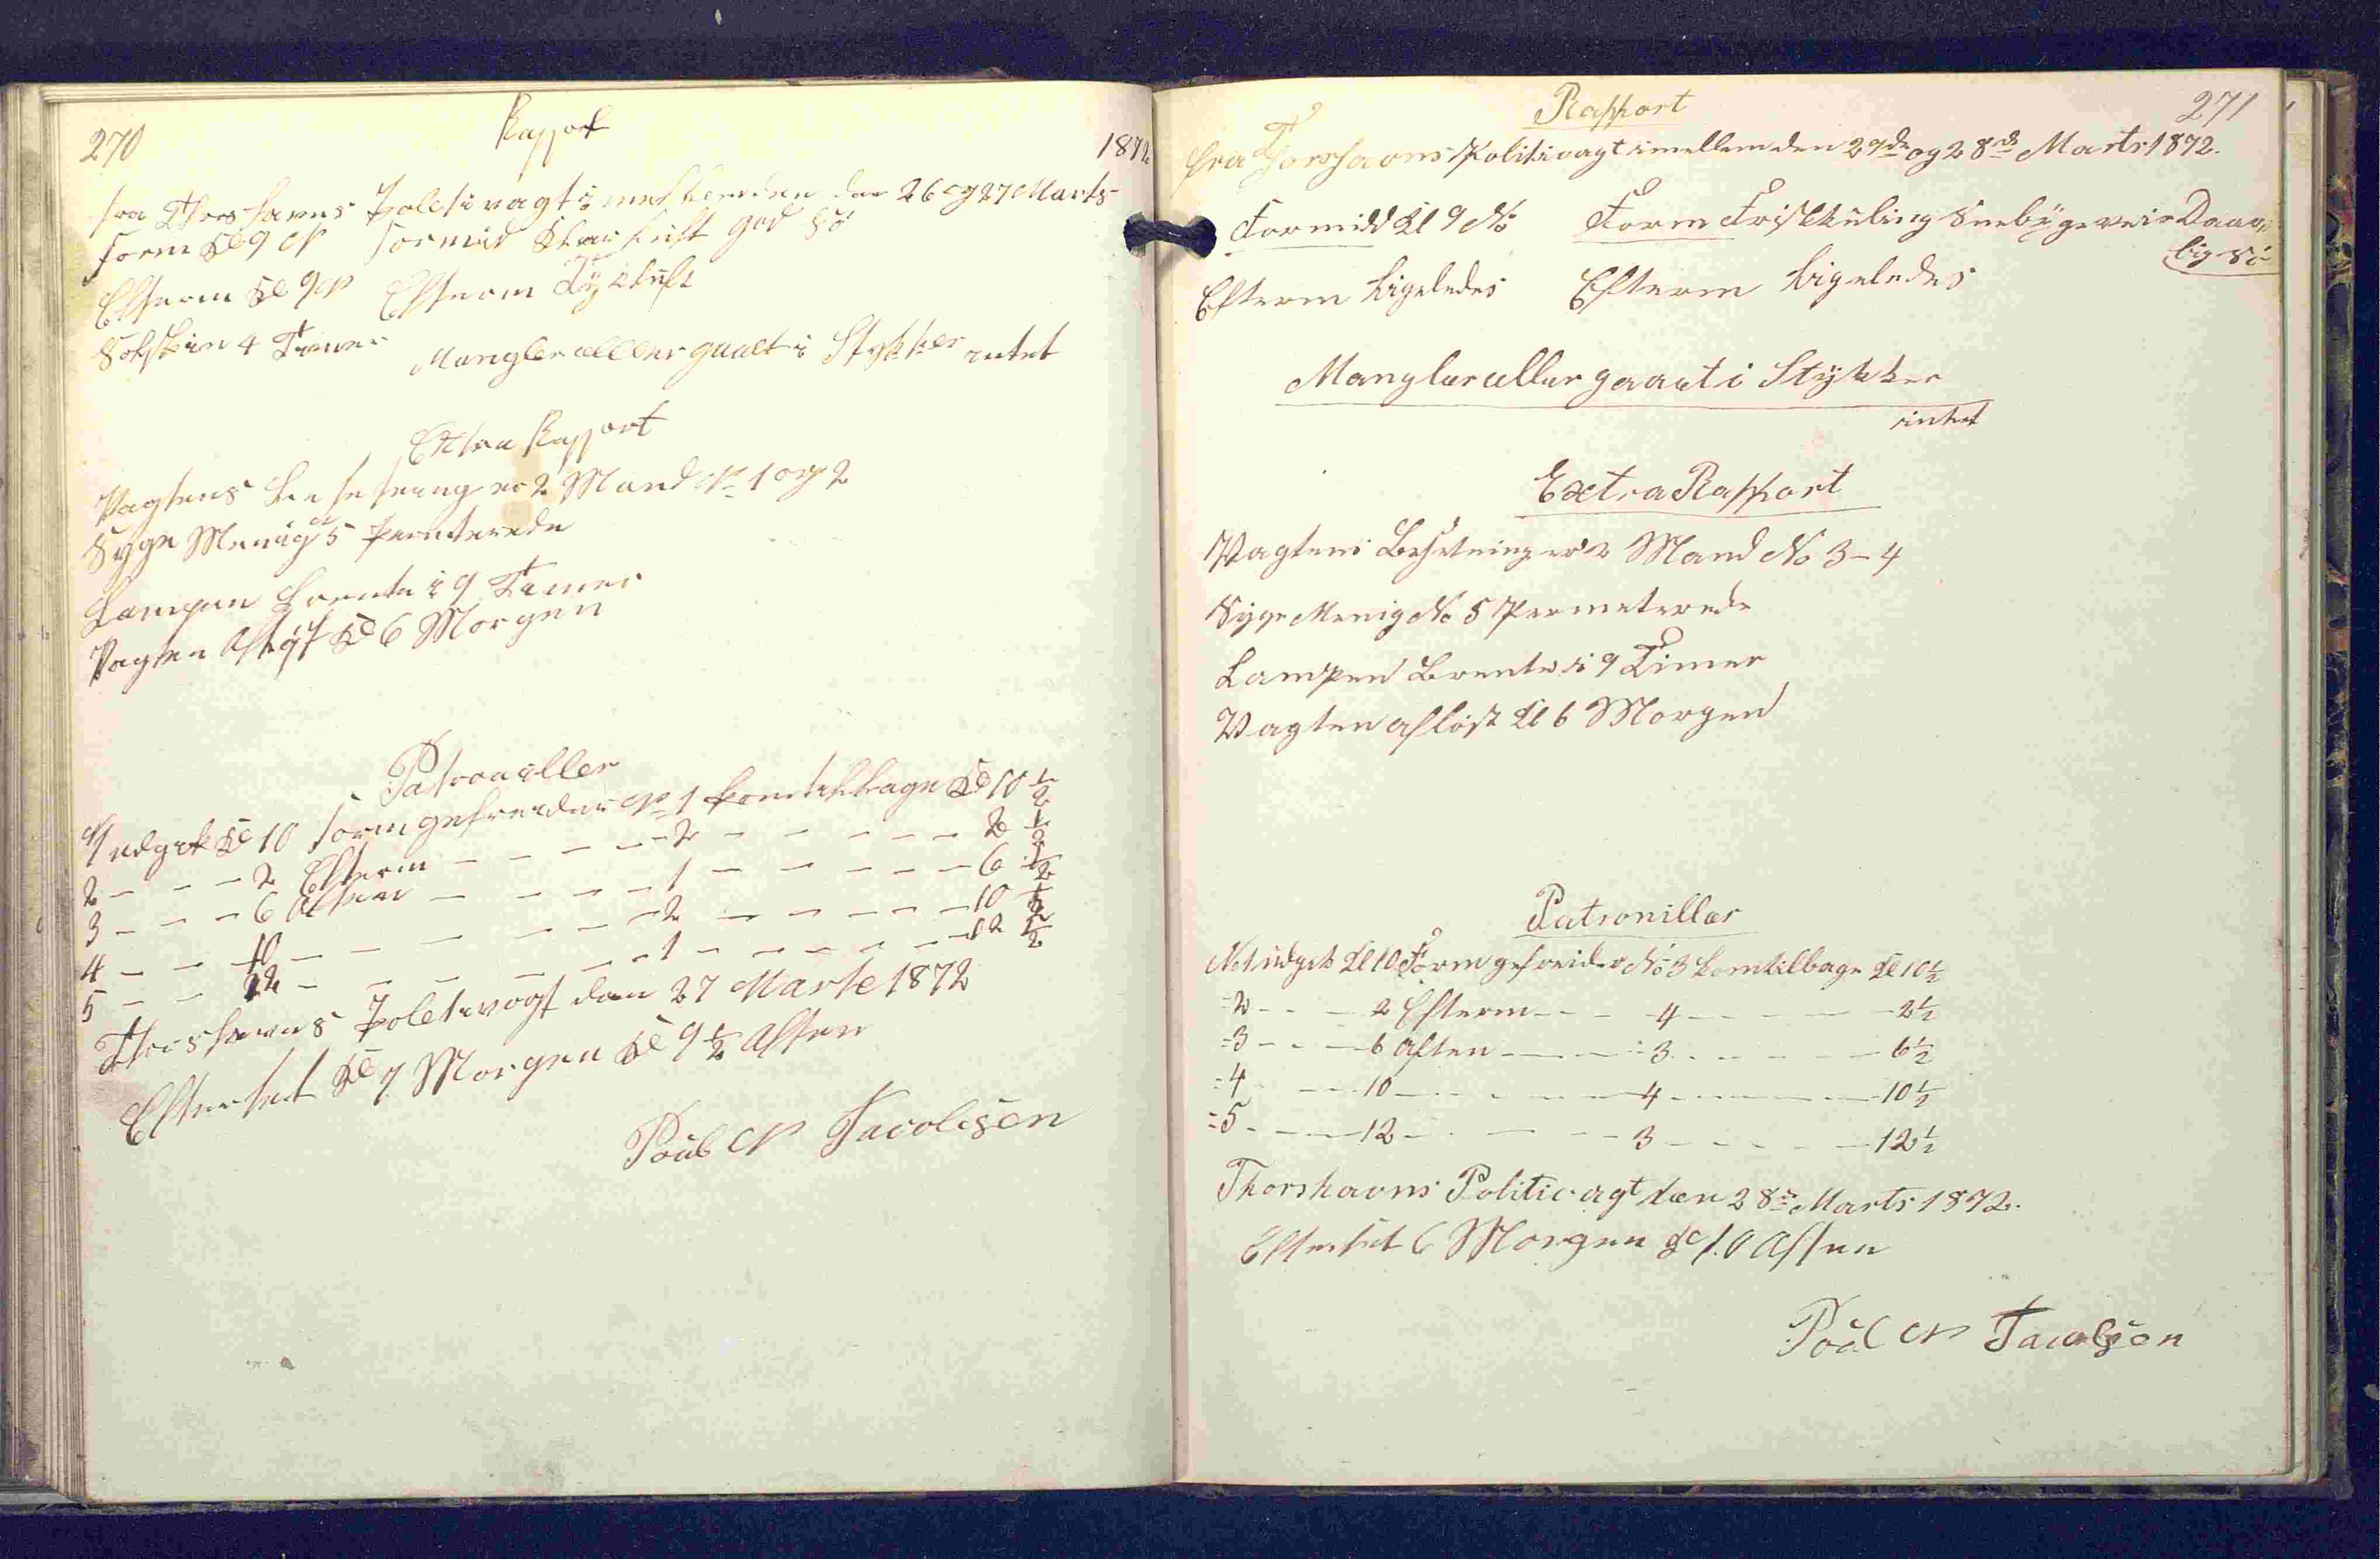 270
Rapport
1872
fra Thorshavns Politivagt imellem den 26 og 27 Marts
Form Kl 9 N Formid Klar Luft god Sö
Efterm Kl 9 N Efterm Tyk Luft
Solskin 4 Timer Mangler eller gaaet i Stykker intet
Extra Rapport
Vagtens Besetning er 2 Mand N 1 og 2
Syge Menig N 5 Permiterede
Lampen Brente i 9 Timer
Vagten Afløst Kl 6 Morgen
Patrouiller
N 1 udgik Kl 10 Form gefreider N 1 kom tilbage Kl 10 1/2
2 – – – 2 Efterm – – – – 2 – – – – – – 2 1/2
3 – – – 6 Aften – – – – 1 – – – – – – 6 1/2
4 – – 10 – – – – – – 2 – – – – – 10 1/2
5 – – 12 – – – – – – 1 – – – – – – 12 1/2
Thorshavns Politivagt den 27 Marts 1872
Efterset Kl 7 Morgen Kl 9 1/2 Aften
Poul N Jacobsen
271
Rapport
fra Thorshavns Politivagt imellem den 27de og 28de Marts 1872.
Formidd Kl 9 N: Form Frisk Kuling Sneebygeveir Daar,,
lig Sö
Efterm Ligeledes Efterm Ligeledes
Mangler eller gaaet i Stykker
intet
Extra Rapport
Vagtens Besetning er 2 Mand No 3 – 4
Syge Menig No 5 Permeterede
Lampen Brente i 9 Timer
Vagten afløst Kl 6 Morgen
Patroniller
No 1 udgik Kl 10 Form gefreider No 3 kom tilbage Kl 10 1/2
= 2 – – – 2 Efterm – – – 4 – – – – 2 1/2
= 3 – – – 6 Aften – – – 3 – – – – 6 1/2
= 4 – – – 10 – – – – – 4 – – – – 10 1/2
= 5 – – – 12 – – – – – 3 – – – – 12 1/2
Thorshavns Politivagt den 28de Marts 1872.
Efterset 6 Morgen Kl 10 Aften
Poul N Jacobsen